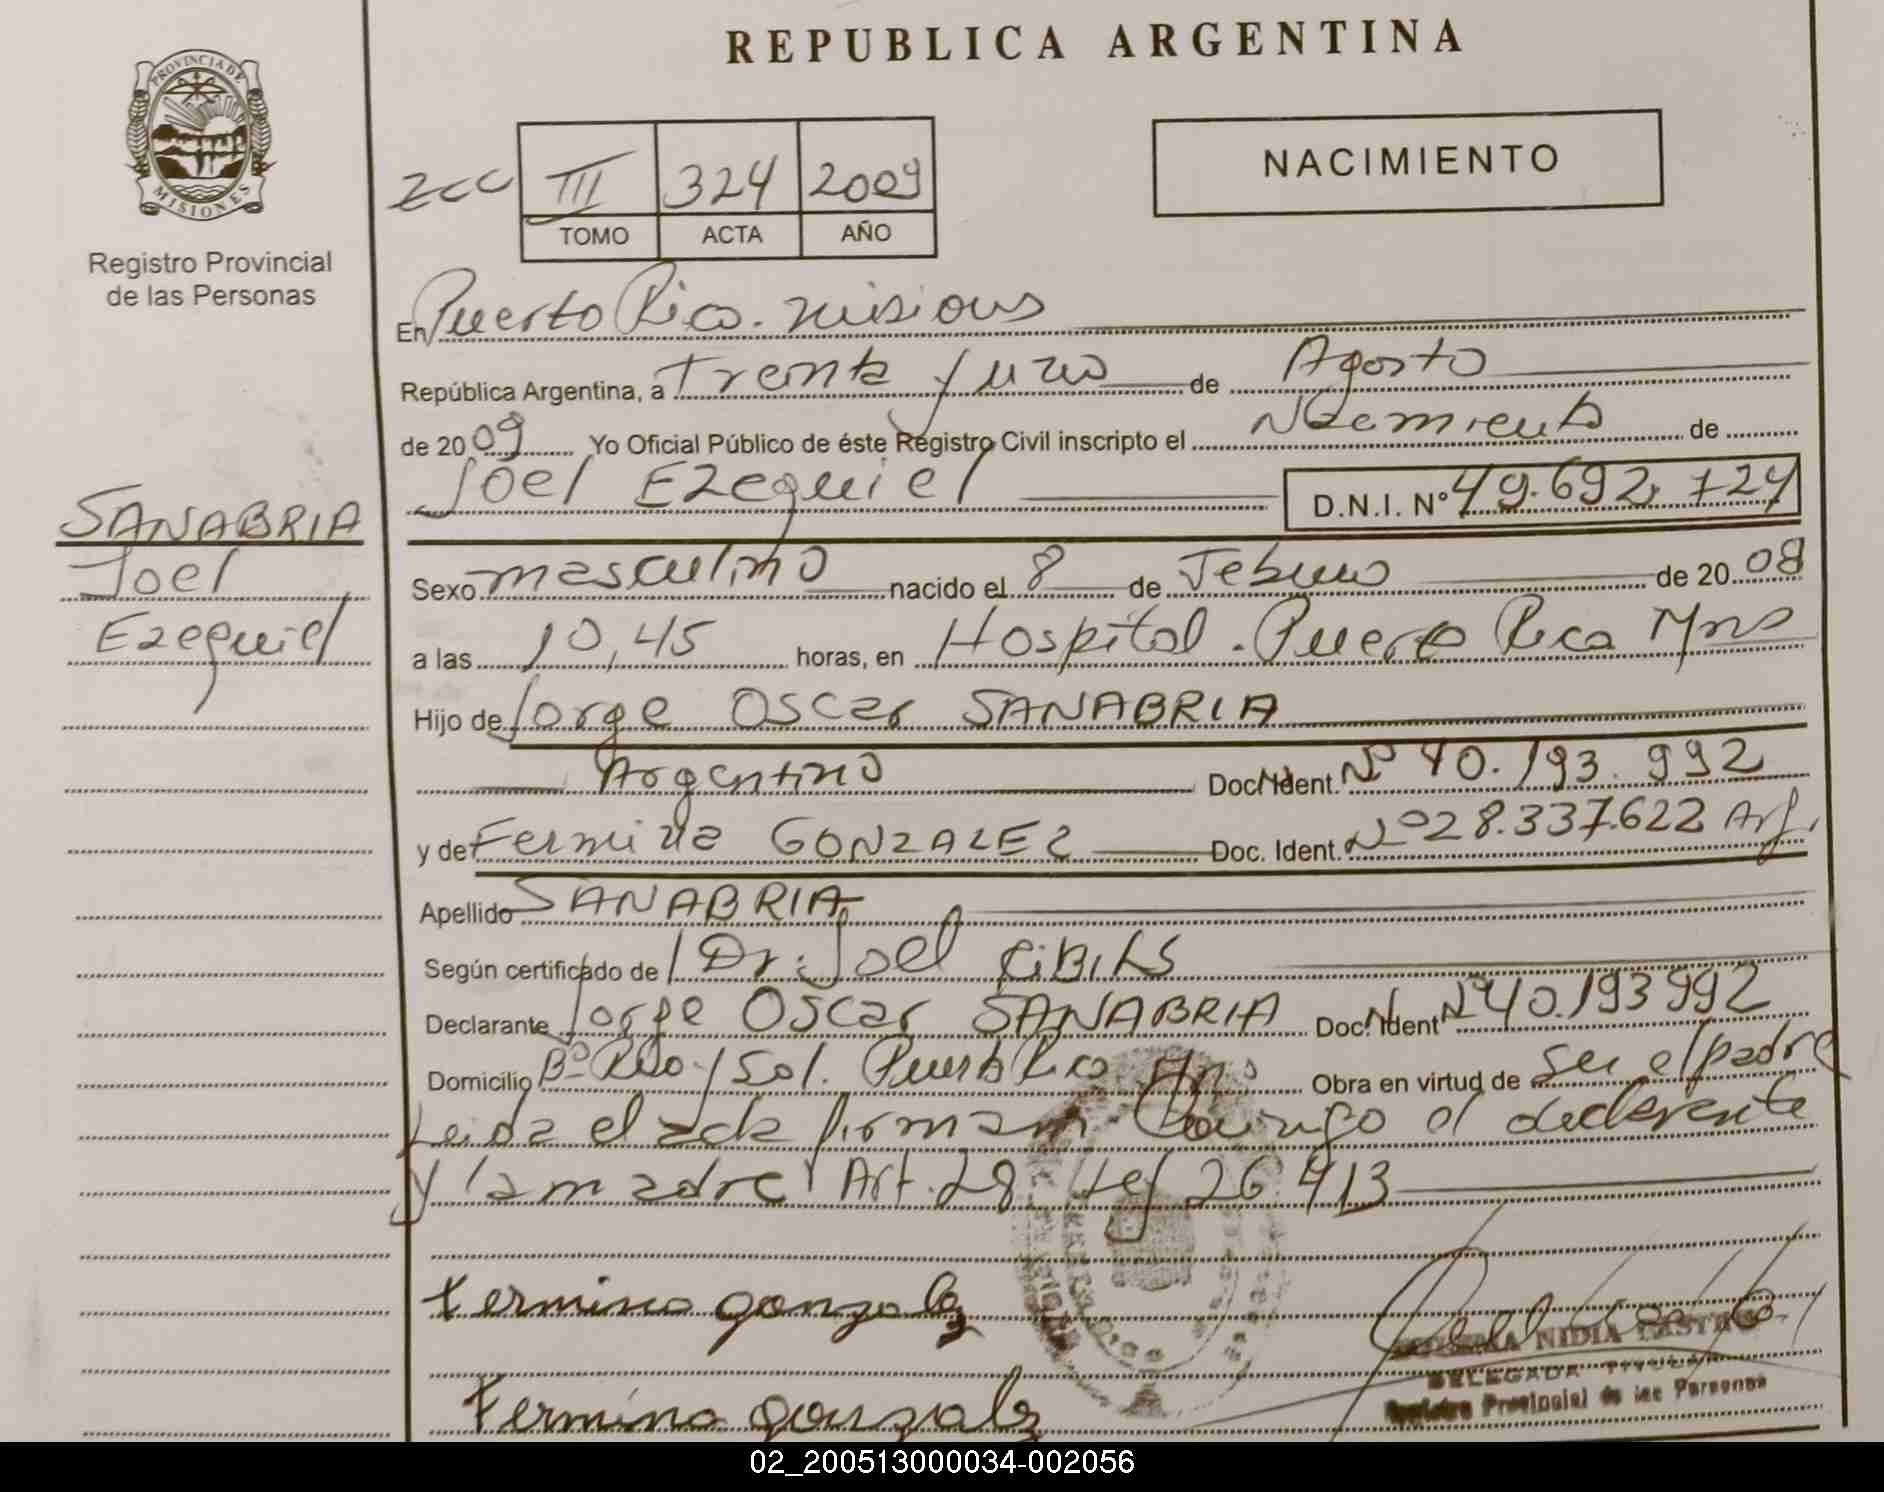 REPUBLICA ARGENTINA
PROVINCIA DE
MISIONES
Registro Provincial
de las Personas
III 324 2009
TOMO ACTA AÑO
NACIMIENTO
En Puerto Rico. Misiones
República Argentina, a Treinta y uno de Agosto
de 2009 Yo Oficial Público de éste Registro Civil inscripto el Nacimiento de
Joel Ezequiel D.N.I. Nº 49.692.724
SANABRIA
Joel
Ezequiel
Sexo masculino nacido el 8 de Febrero de 2008
a las 10,45 horas, en Hospital. Puerto Rico Mns
Hijo de Jorge Oscar SANABRIA
Argentino Doc. Ident. Nº 40.193.992
y de Fermina GONZALEZ Doc. Ident. Nº 28.337.622 Arg.
Apellido SANABRIA
Según certificado de Dr. Joel
Declarante Jorge Oscar SANABRIA Doc. Ident Nº 40.193992
Domicilio Bº Sol. Puerto Rico Mns Obra en virtud de ser el padre
Leida el acta firman conmigo el declarante
y la madre Art. 28 Ley 26.413
Fermina gonzalez
Fermina gonzalez
NIDIA CASTRO
DELEGADA TITULAR
Registro Provincial de las Personas
02_200513000034-002056